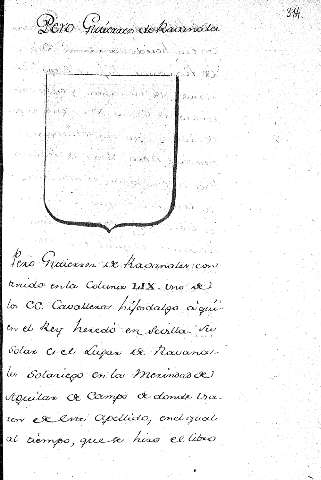 Pero Gutierrez de Ravanales
Pero Gutierrez de Ravanales con
tenido en la Coluna LIX. Uno de
los CC. Cavalleros hijosdalgo à qui
en el Rey heredó en Sevilla. Su
solar es el Lugar de Ravana
les Solariego en las Merindad de
Aguilar de Campo de donde usa
ron de este Apellido, en el qual
al tiempo, que se hizo el libro